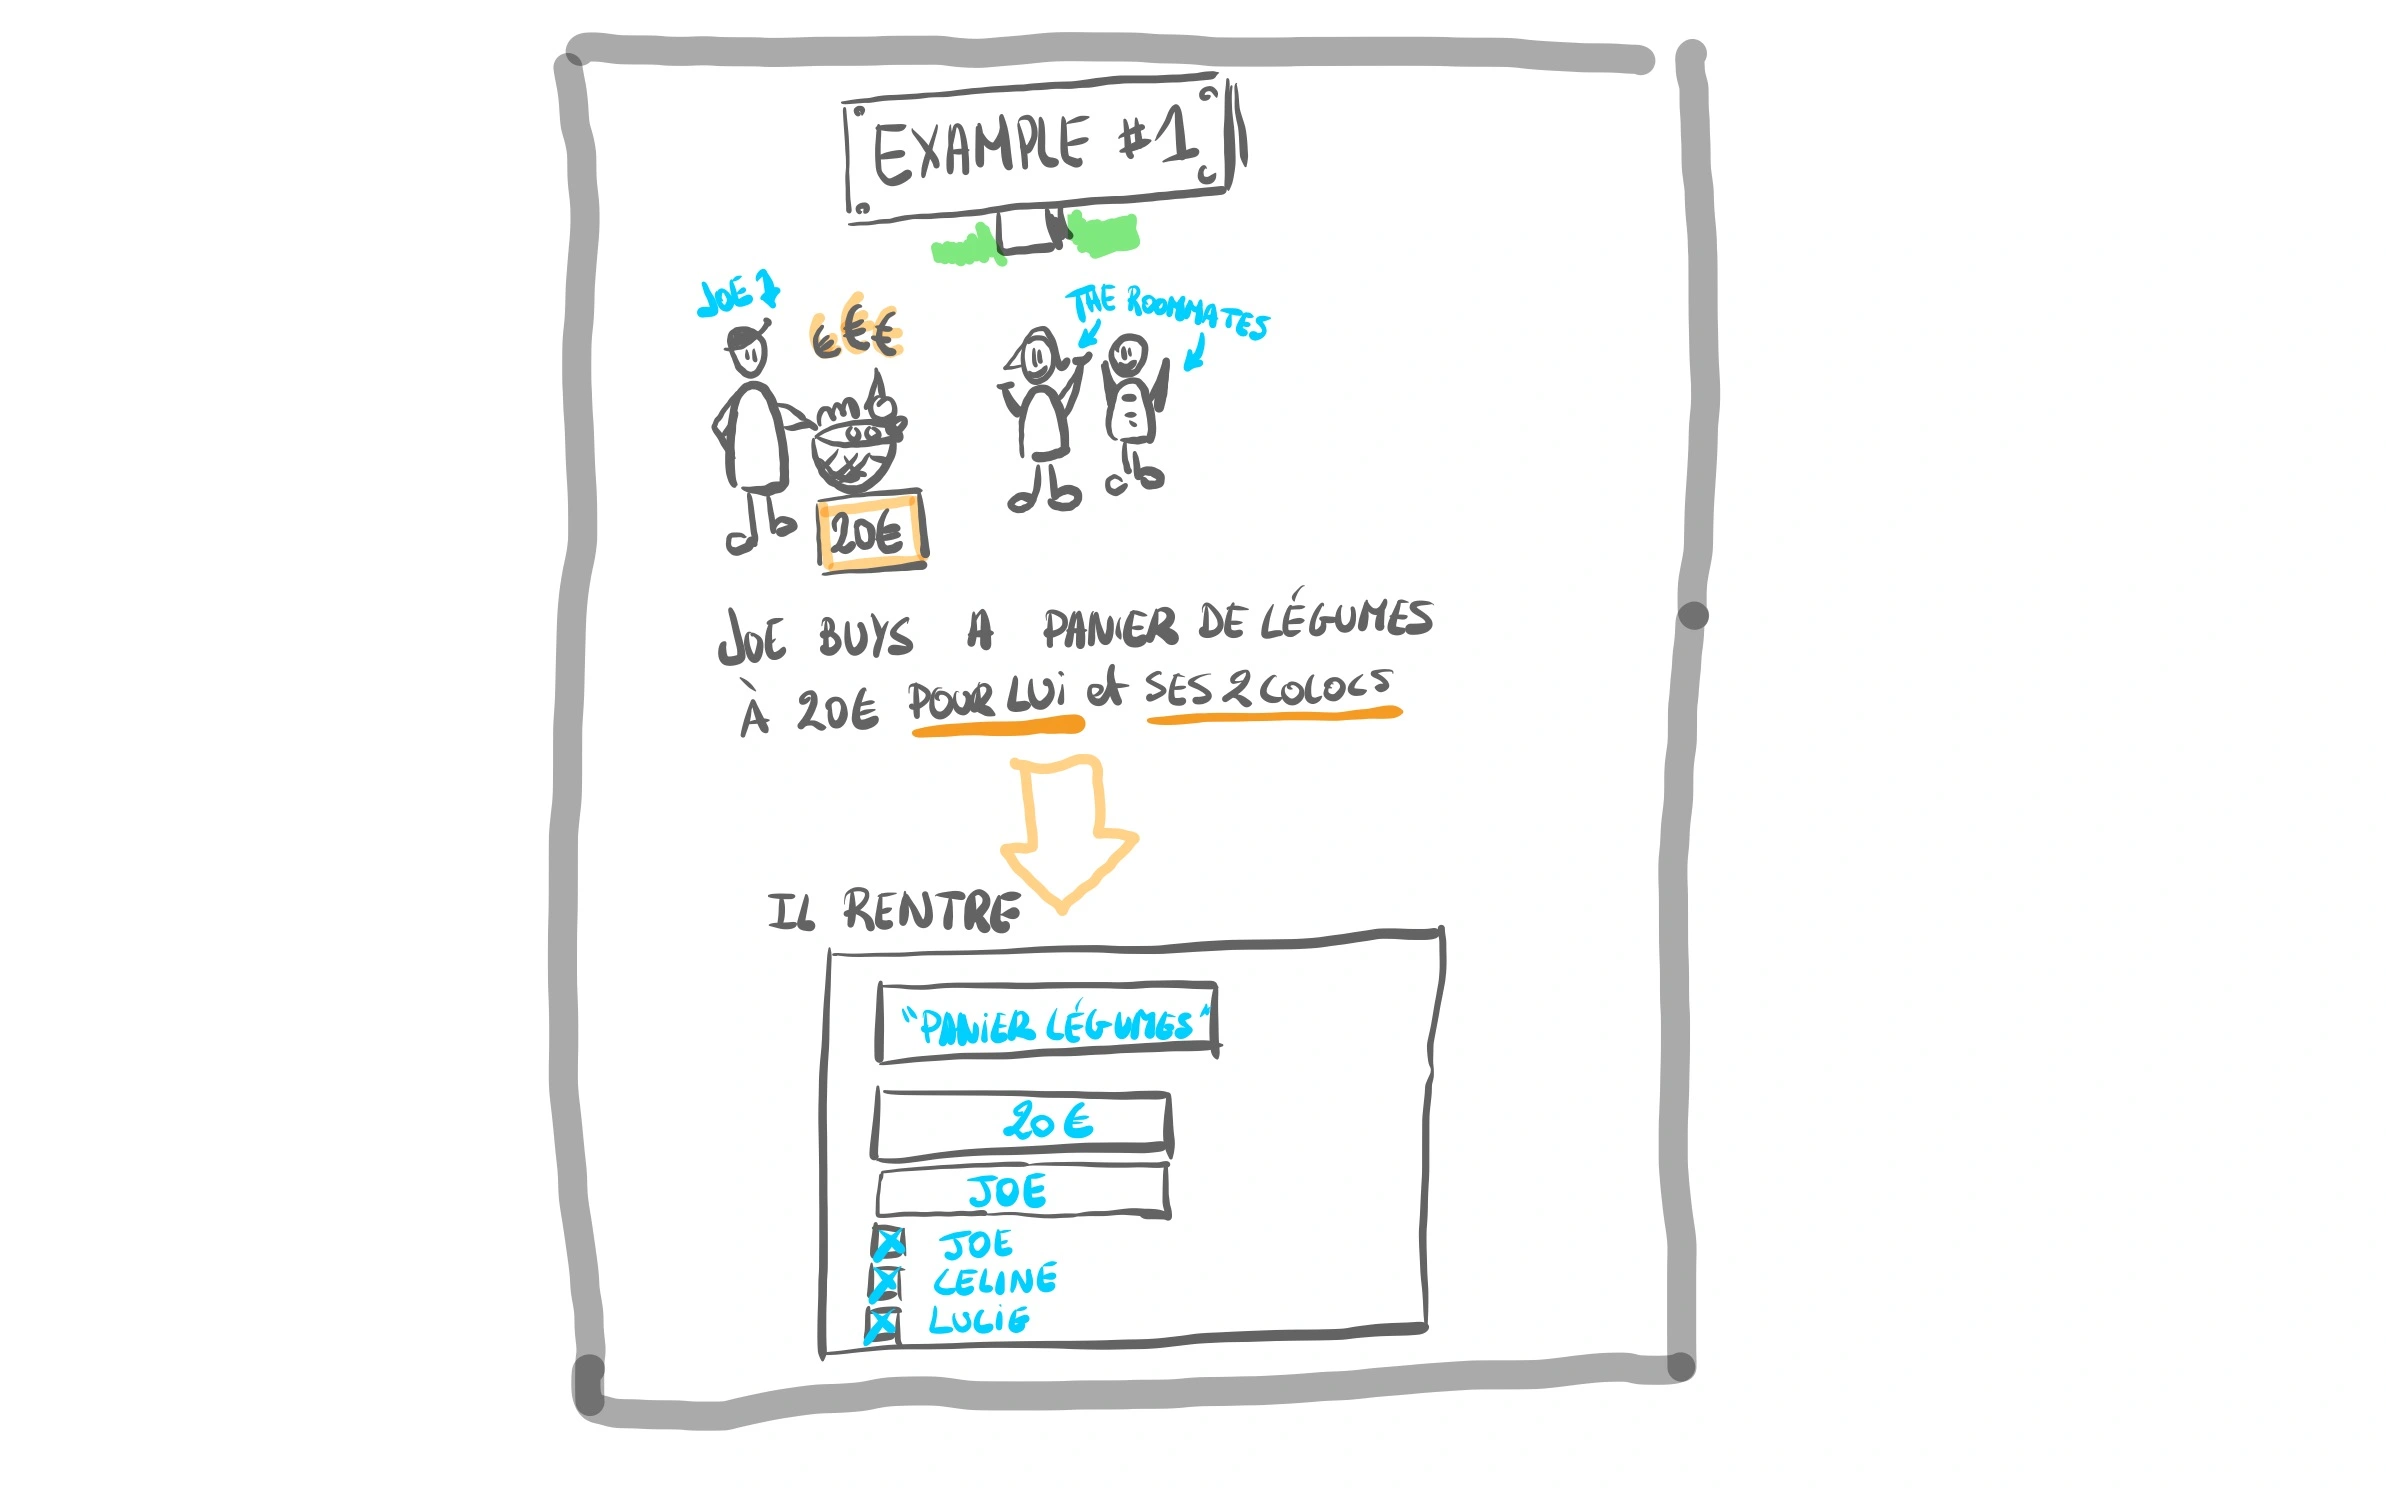 EXAMPLE #1
JOE
THE ROOMMATES
€€€
20€
JOE BUYS A PANIER DE LÉGUMES
À 20€ POUR LUI et SES 2 COLOCS
IL RENTRE
"PANIER LÉGUMES"
20€
JOE
JOE
CELINE
LUCIE